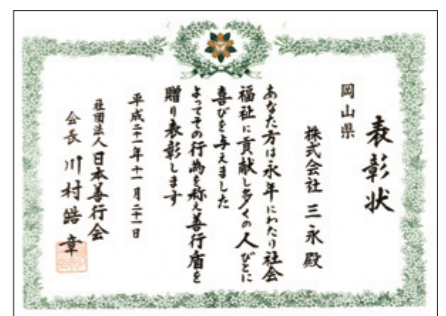 表彰状
岡山県
株式会社 三永殿
あなた方は永年にわたり社会
福祉に貢献し多くの人びとに
喜びを与えました
よってその行為を称え善行盾を
贈り表彰します
平成二十一年十一月二十一日
社団法人 日本善行会
会長 川村皓章